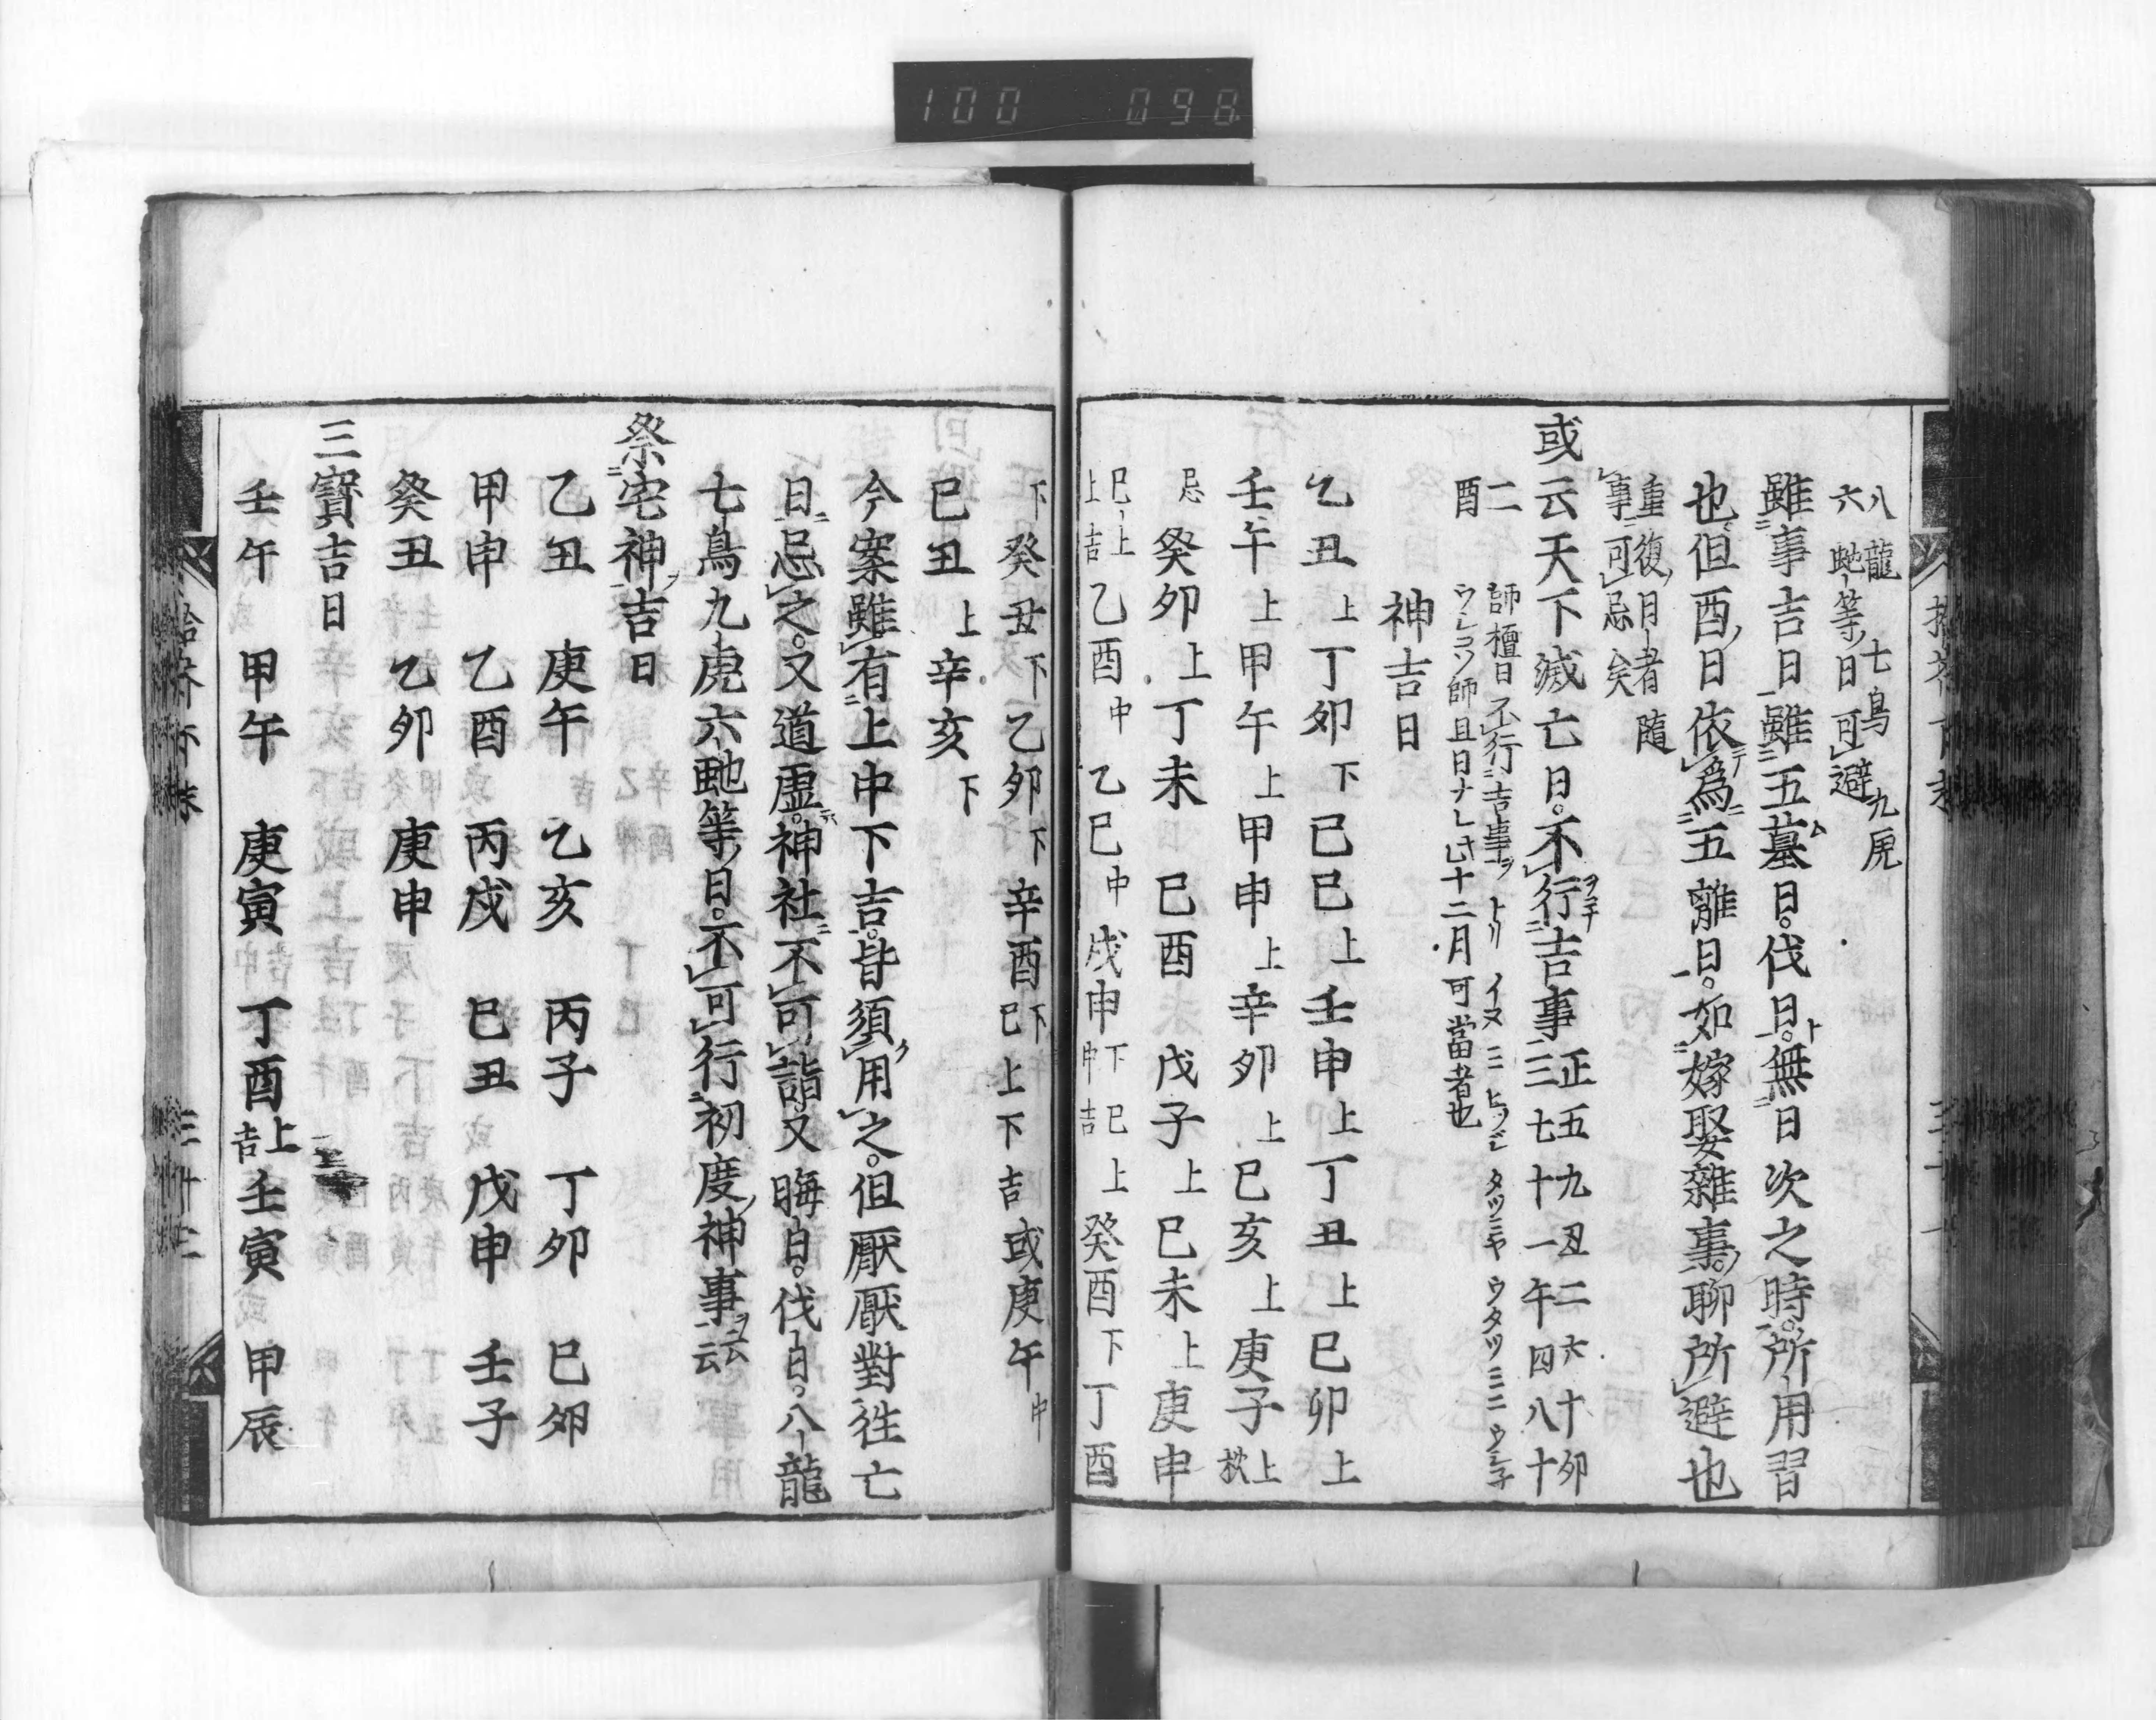 100 098
八龍 七鳥 九虎
六虵等日可避
雖事吉日雖五墓日。伐日。無日次之時。所用習
也。但酉日依為五離日。如嫁娶雜事。聊所避也
重復日者随
事可忌矣
或云天下滅亡日。不行吉事 正五九丑二六十卯
三七十一午四八十
二
酉
師檀日不行吉事
ウシコソ師且日ナレ 十二月可當者也
神吉日
乙丑上丁卯下己巳上壬申上丁丑上巳卯上
壬午上甲午上甲申上辛卯上巳亥上庚子上
忌 癸卯上丁未 巳酉 戊子上巳未上庚申
巳上上吉 乙酉中 乙巳中 戊申下巳中吉上 癸酉下 丁酉
下癸丑下乙卯下辛酉下巳上下吉或庚午中
巳丑上辛亥下
今案雖有上中下吉。皆須用之。但厭厭對往亡
日忌之。又道虛。神社不可詣。又晦日。伐日。八龍
七鳥九虎六虵等日。不可行初度神事云云
祭宅神吉日
乙丑 庚午 乙亥 丙子 丁卯 巳卯
甲申 乙酉 丙戌 巳丑 戊申 壬子
癸丑 乙卯 庚申
三寳吉日
壬午 甲午 庚寅 丁酉上吉 壬寅 甲辰
三十二